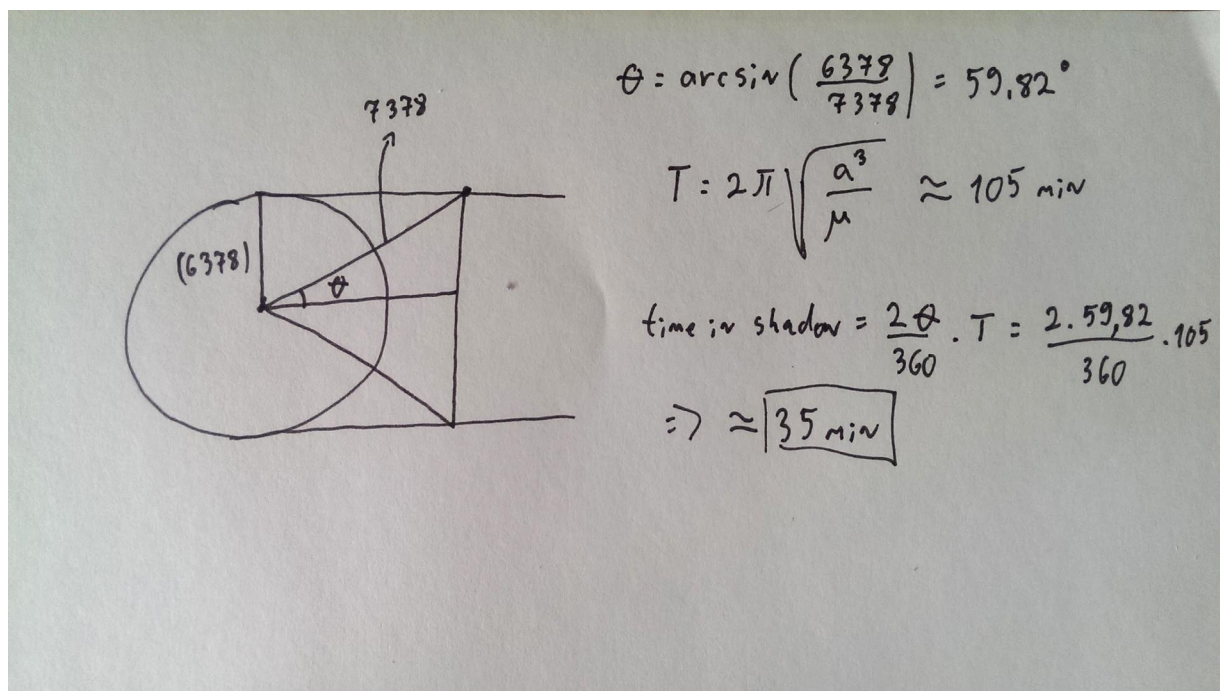 7378
(6378)
θ
θ = arcsin(6378/7378) = 59,82°
T = 2π√(a³/μ) ≈ 105 min
time in shadow = 2θ/360 . T = 2.59,82/360 .105
=> ≈ 35 min